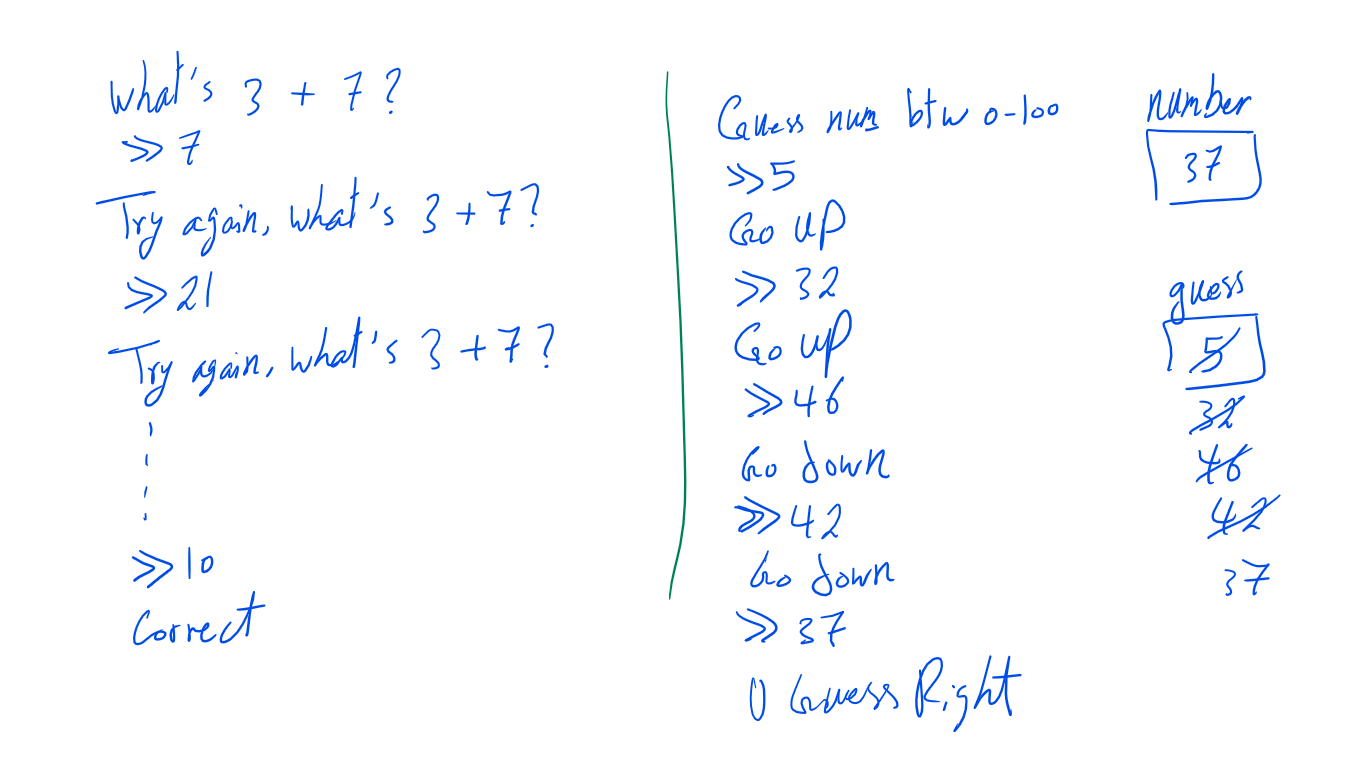 What's 3 + 7?
>> 7
Try again, what's 3 + 7?
>> 21
Try again, what's 3 + 7?
>> 10
Correct
Guess num btw 0-100
>> 5
Go up
>> 32
Go up
>> 46
Go down
>> 42
Go down
>> 37
U Guess Right
number
37
guess
5
32
46
42
37